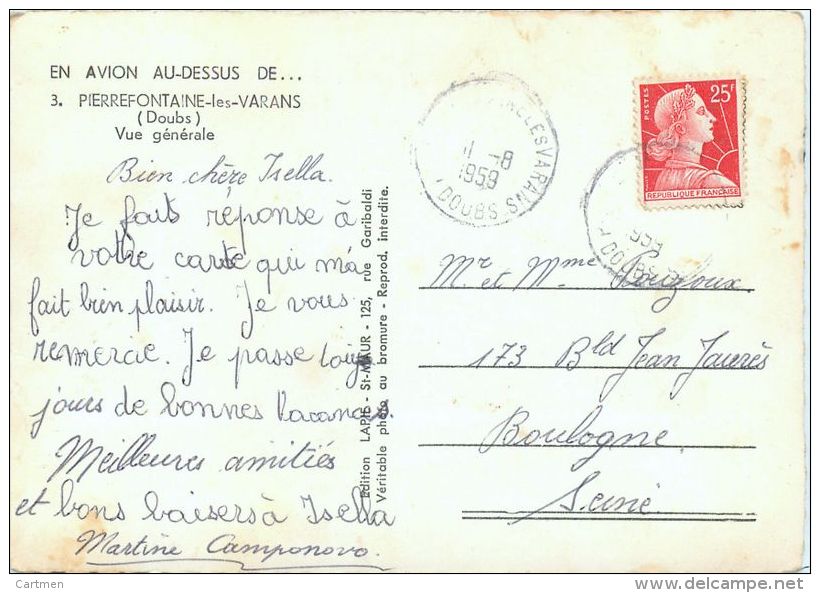 EN AVION AU-DESSUS DE...
3. PIERREFONTAINE-les-VARANS
(Doubs)
Vue générale
Bien chère Isella.
Je fais réponse à
votre carte qui m'a
fait bien plaisir. Je vous
remercie. Je passe touj
jours de bonnes vacances.
Meilleures amitiés
et bons baisers à Isella
Martine Camponovo.
Edition LAPIE - St-MAUR - 125, rue Garibaldi
Véritable photo au bromure - Reprod. interdite.
LES VARANS
11 -8
1959
DOUBS
POSTES
25F
REPUBLIQUE FRANÇAISE
959
DOUBS
Mr et Mme
173 Bld Jean Jaurès
Boulogne
Seine
Cartmen
www.delcampe.net